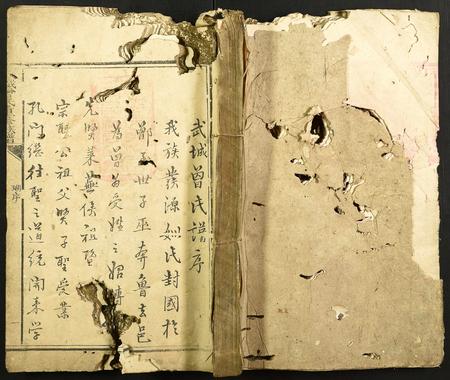 武城曾氏譜序
我族發源姒氏封國於
鄫 世子巫奔魯去邑
為曾為受姓之始
先賢萊蕪侯祖暨
宗聖公祖父賢子聖受業
孔門繼往聖之道統開來學
序